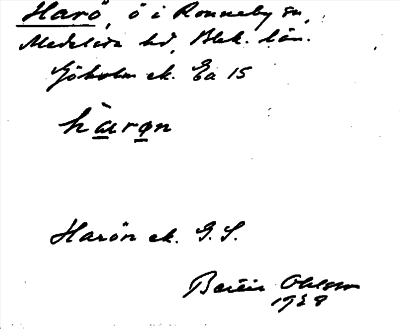 Harö, ö i Ronneby sn,
Medelsta hd, Blek. län.
Göholm ek. Ea 15
hàrǝn
Harön ek. G.S.
Bertil Ohlsson
1928